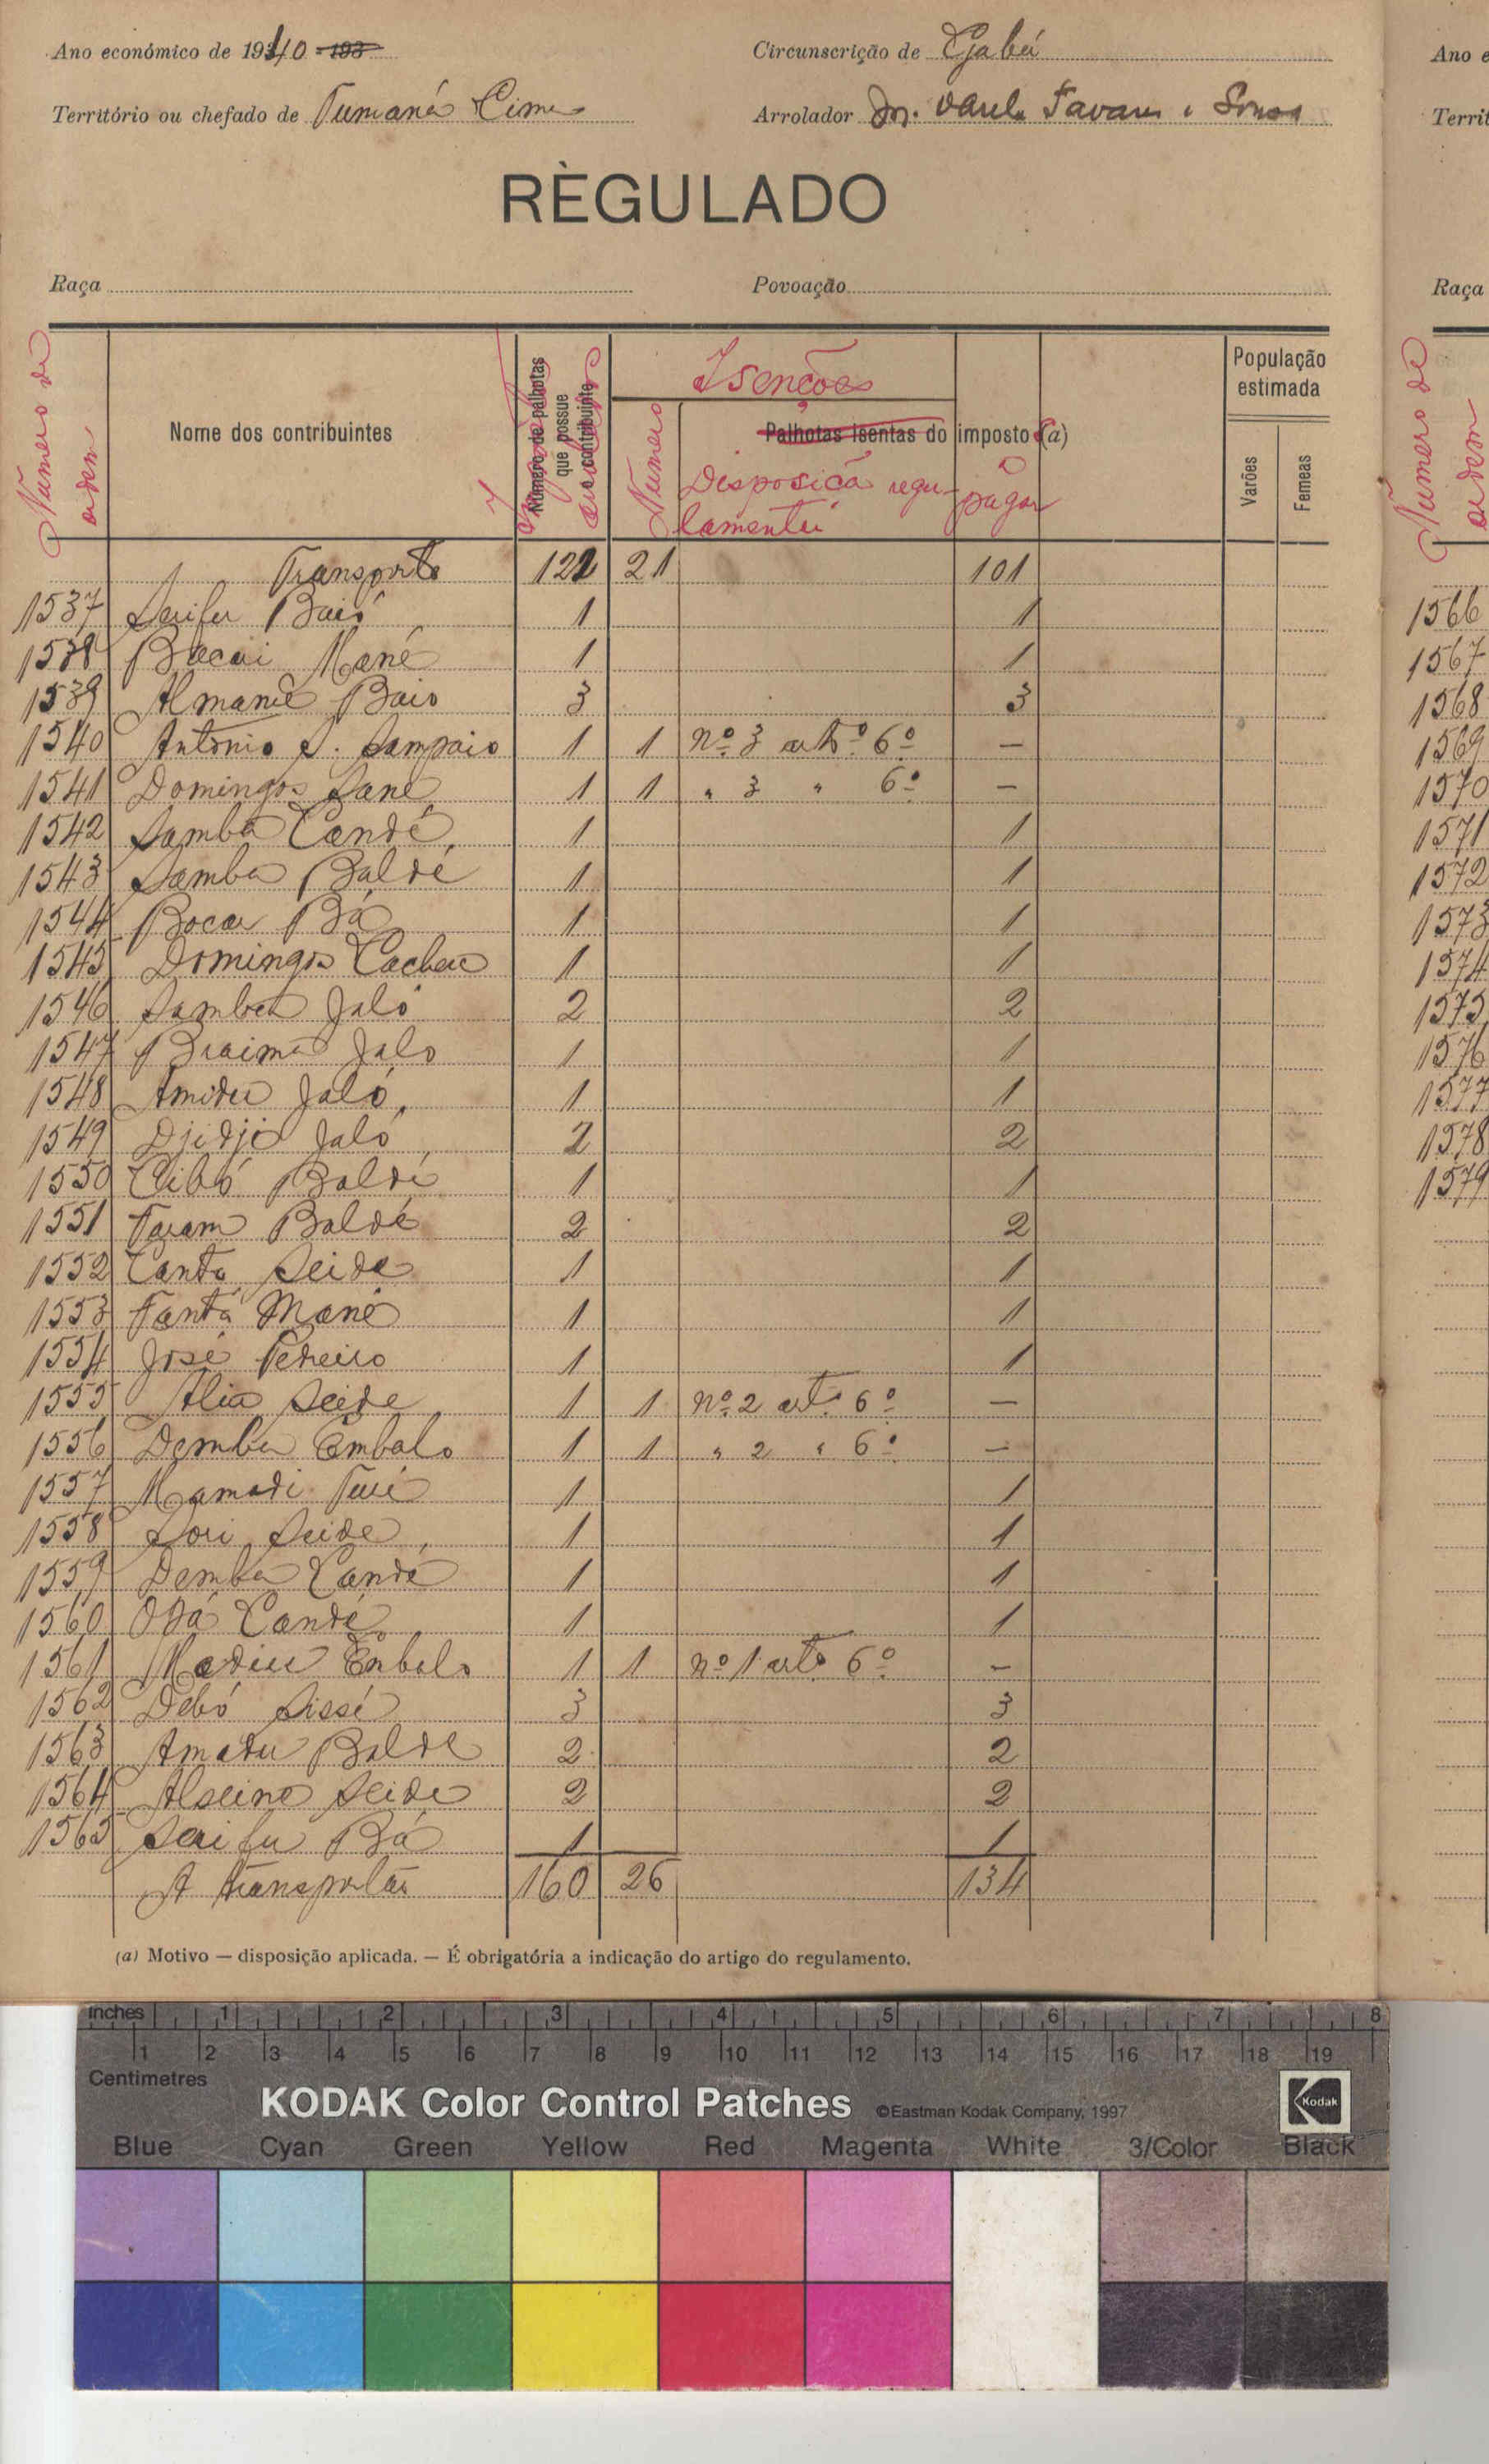 Ano económico de 1940 193
Circunscrição de Gabú
Território ou chefado de Tumaná Cima
Arrolador Tavares e Sousa
RÈGULADO
Raça
Povoação
Número de ordem
Nome dos contribuintes
Número de palhotas que possue o contribuinte
Isenções
Número
Palhotas Isentas do imposto (a)
Disposição regulamentar
a pagar
População estimada
Varões
Femeas
Transporte 122 21 101
1537 Serifu Baió 1 1
1538 Bacai Mané 1 1
1539 Almané Baio 3 3
1540 António S. Sampaio 1 1 nº 3 artº 6º —
1541 Domingos Sané 1 1 " 3 " 6º —
1542 Samba Candé 1 1
1543 Samba Baldé 1 1
1544 Bocar Bá 1 1
1545 Domingos Cacheu 1 1
1546 Samba Jaló 2 2
1547 Braima Jalo 1 1
1548 Amidu Jaló 1 1
1549 Djidjo Jaló 2 2
1550 Cibó Baldé 1 1
1551 Faram Baldé 2 2
1552 Canta Seide 1 1
1553 Fantá Mané 1 1
1554 José Pedreiro 1 1
1555 Alia Seide 1 1 nº 2 artº 6º —
1556 Demba Embalo 1 1 " 2 " 6º —
1557 Mamadi Turé 1 1
1558 Sori Seide 1 1
1559 Demba Candé 1 1
1560 Odá Candé 1 1
1561 Madiu Embalo 1 1 nº 1 artº 6º —
1562 Debó Sissé 3 3
1563 Amadu Balde 2 2
1564 Alseine Seidi 2 2
1565 Serifu Bá 1 1
A transportar 160 26 134
(a) Motivo — disposição aplicada. — É obrigatória a indicação do artigo do regulamento.
Ano e
Territ
Raça
Número de ordem
1566
1567
1568
1569
1570
1571
1572
1573
1574
1575
1576
1577
1578
1579
inches 1 2 3 4 5 6 7 8
1 2 3 4 5 6 7 8 9 10 11 12 13 14 15 16 17 18 19
Centimetres
KODAK Color Control Patches ©Eastman Kodak Company, 1997 Kodak
Blue Cyan Green Yellow Red Magenta White 3/Color Black